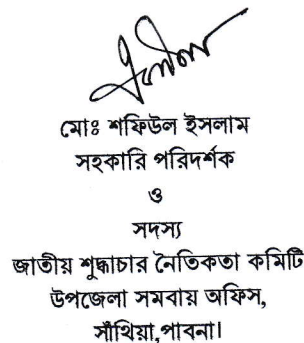 মোঃ শফিউল ইসলাম
সহকারি পরিদর্শক
ও
সদস্য
জাতীয় শুদ্ধাচার নৈতিকতা কমিটি
উপজেলা সমবায় অফিস,
সাঁথিয়া,পাবনা।